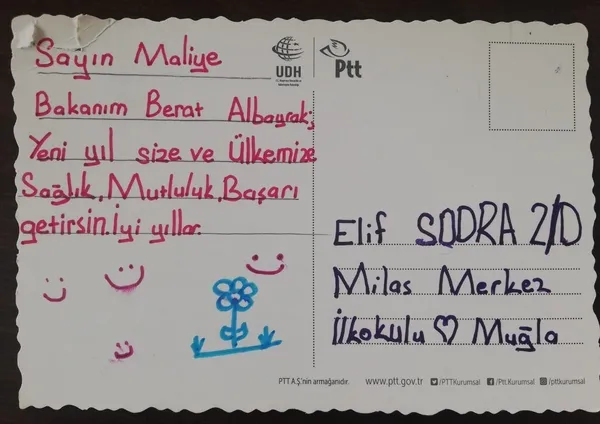 Sayın Maliye
Bakanım Berat Albayrak;
Yeni yıl size ve Ülkemize
Sağlık, Mutluluk, Başarı
getirsin. İyi yıllar.
UDH
Ptt
Elif SODRA 2/D
Milas Merkez
İlkokulu ♡ Muğla
PTT A.Ş.'nin armağanıdır.
www.ptt.gov.tr PTTKurumsal Ptt.Kurumsal pttkurumsal